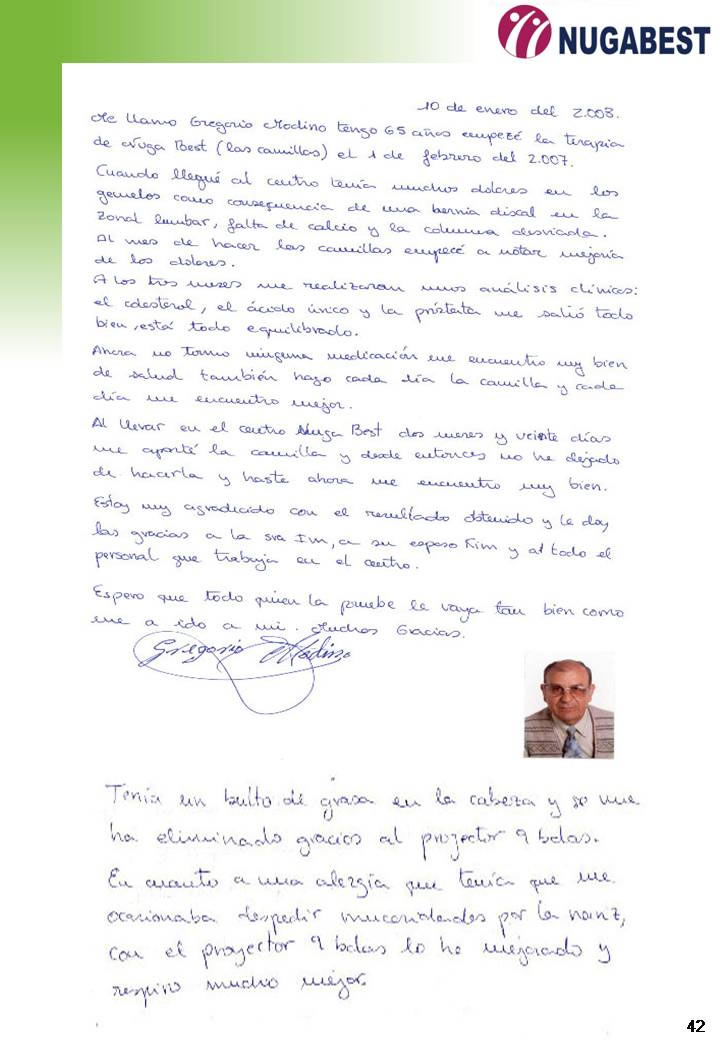 NUGABEST
10 de enero del 2.008.
Me llamo Gregorio Modino tengo 65 años empecé la terapia
de Nuga Best (las camillas) el 1 de febrero del 2.007.
Cuando llegué al centro tenía muchos dolores en los
gemelos como consecuencia de una hernia discal en la
zonal lumbar, falta de calcio y la columna desviada.
Al mes de hacer las camillas empecé a notar mejoría
de los dolores.
A los tres meses me realizaron unos análisis clínicos:
el colesterol, el ácido único y la próstata me salió todo
bien, está todo equilibrado.
Ahora no tomo ninguna medicación me encuentro muy bien
de salud también hago cada día la camilla y cada
día me encuentro mejor.
Al llevar en el centro Nuga Best dos meses y veinte días
me aporté la camilla y desde entonces no he dejado
de hacerla y hasta ahora me encuentro muy bien.
Estoy muy agradecido con el resultado obtenido y le doy
las gracias a la sra Im, a su esposo Kim y al todo el
personal que trabaja en el centro.
Espero que todo quien la pruebe le vaya tan bien como
me a ido a mi. Muchos Gracias.
Gregorio Modino
Tenía un bulto de grasa en la cabeza y se me
ha eliminado gracias al proyector 9 bolas.
En cuanto a una alergia que tenía que me
ocasionaba despedir mucosidades por la nariz,
con el proyector 9 bolas lo he mejorado y
respiro mucho mejor.
42